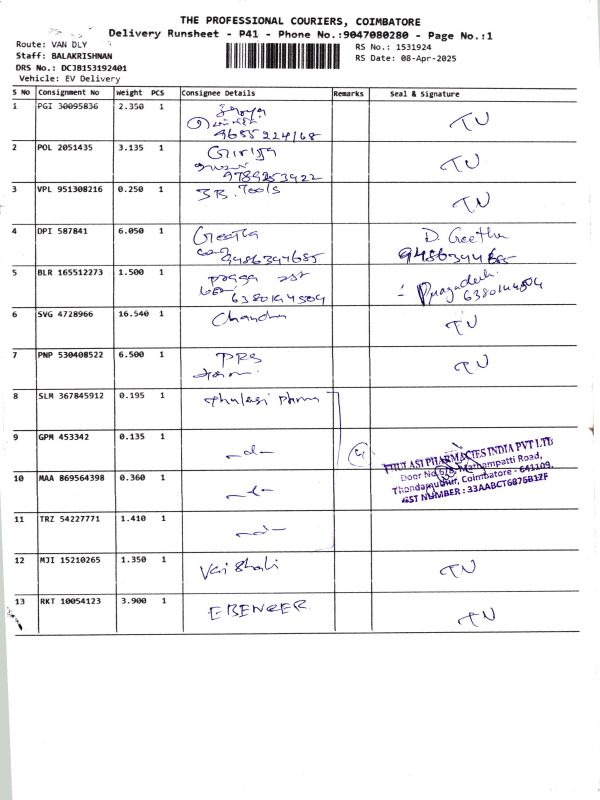 THE PROFESSIONAL COURIERS, COIMBATORE
Delivery Runsheet - P41 - Phone No.:9047080280 - Page No.:1
Route: VAN DLY
RS No.: 1531924
Staff: BALAKRISHNAN
RS Date: 08-Apr-2025
DRS No.: DCJB153192401
Vehicle: EV Delivery
S No Consignment No Weight PCS Consignee Details Remarks Seal & Signature
1 PGI 30095836 2.350 1
9685224168
2 POL 2051435 3.135 1 Girija
9789253922
3 VPL 951308216 0.250 1 JB. Tools
4 DPI 587841 6.050 1 Geetha D. Geetha
9486394685 9486394685
5 BLR 165512273 1.500 1
6380144504 6380144504
6 SVG 4728966 16.540 1 Chandru
7 PNP 530408522 6.500 1 PRS
8 SLM 367845912 0.195 1 thulasi pharm
9 GPM 453342 0.135 1 -d-
THULASI PHARMACIES INDIA PVT LTD
10 MAA 869564398 0.360 1 -d-
Thondamuthur, Coimbatore - 641109.
GST NUMBER : 33AABCT6876B1ZF
11 TRZ 54227771 1.410 1 -d-
12 MJI 15210265 1.350 1 Vaishali
13 RKT 10054123 3.900 1 EBENEZER